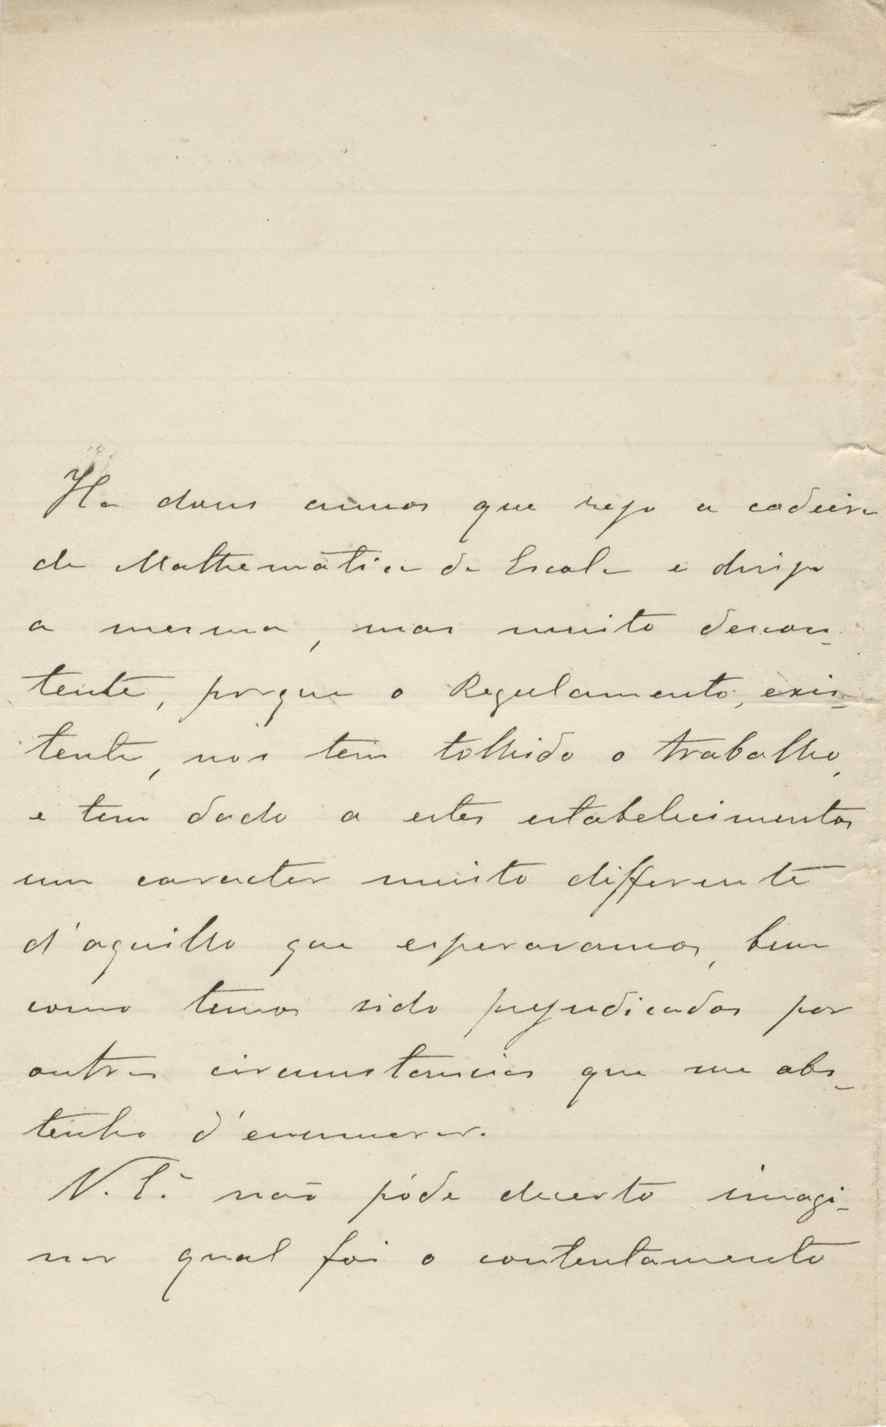 Ha dous annos que rejo a cadeira
de Mathematica da Escola e dirijo
a mesma, mas muito descon-
tente, porque o Regulamento, exis-
tente, nos tem tolhido o trabalho,
e tem dado a estes estabelecimentos
um caracter muito differente
d'aquillo que esperavamos, bem
como temos sido prejudicados por
outras circumstancias que me abs-
tenho d'enumerar.
V. Eª não póde decerto imagi-
nar qual foi o contentamento